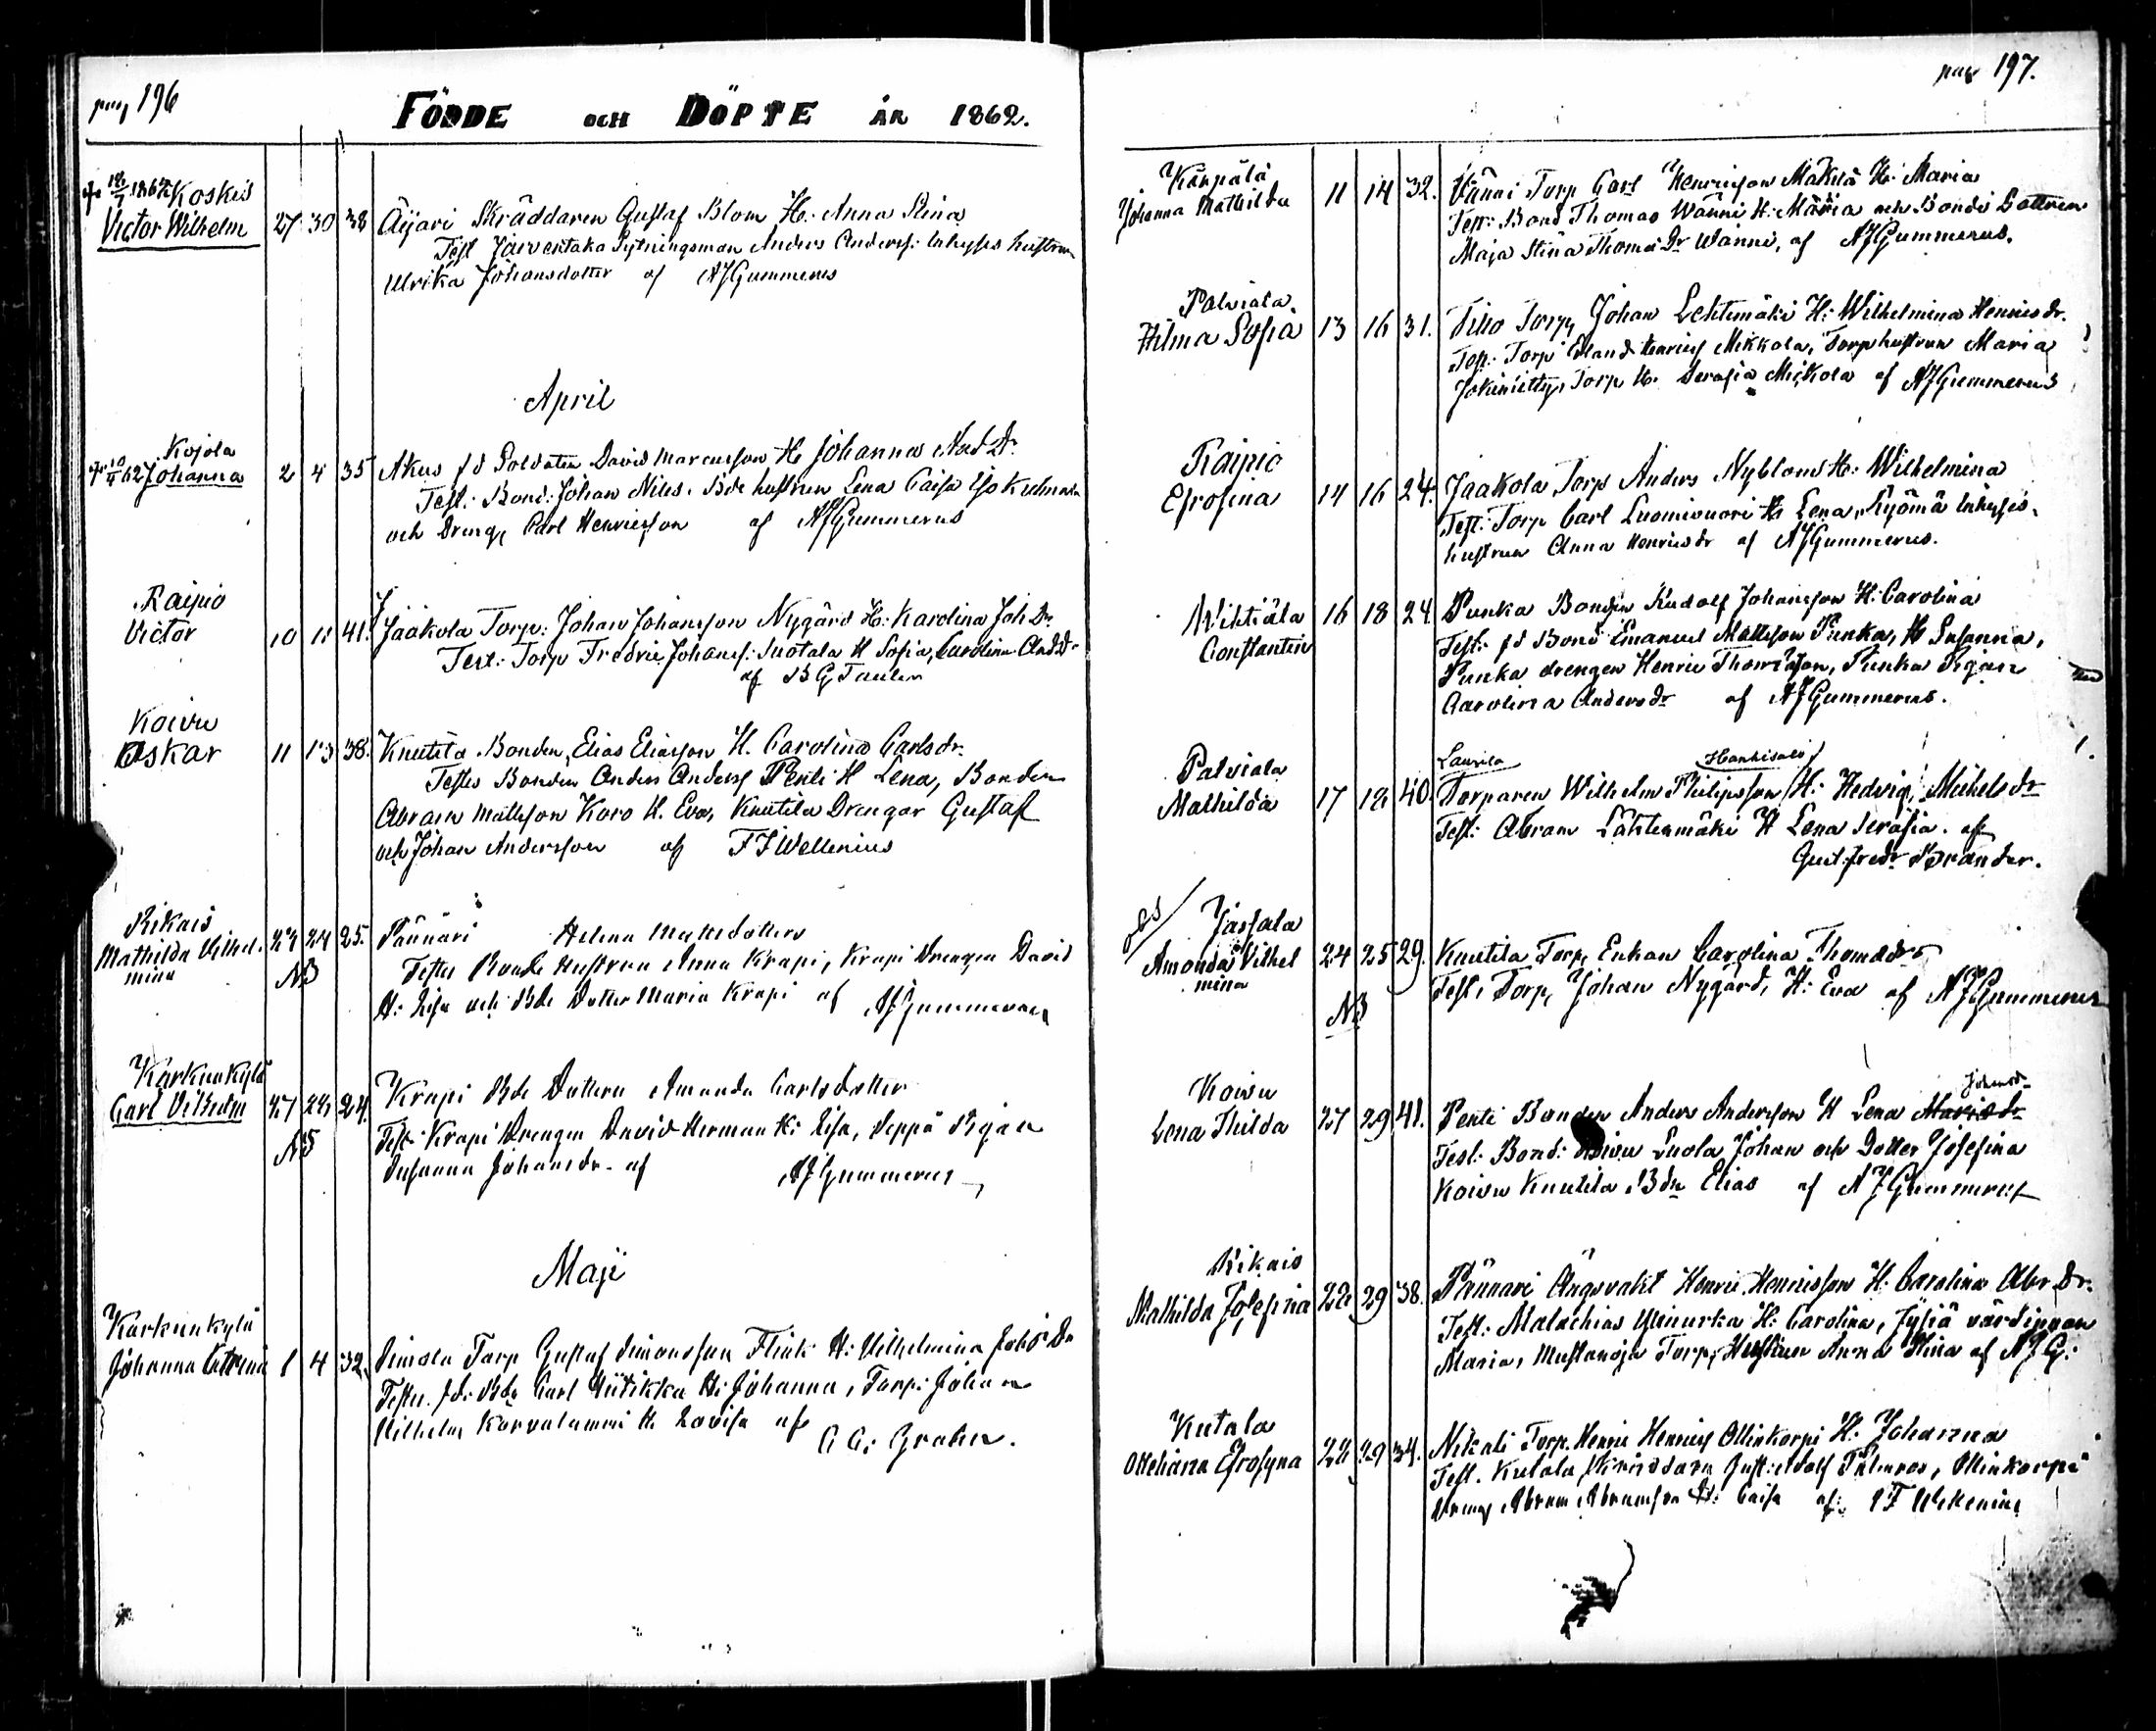 pag 196
FÖDDE OCH DÖPTE ÅR 1862.
Koskis
Victor Wilhelm 27 30 38 Äijäri Skräddaren Gustaf Blom H. Anna Stina
Test Järventaka Sytningsman Anders Anderss: Inhyses hustrun
Ulrika Johansdotter af AJGummerus
April
Kojola
Johanna 2 4 35 Akus fd Soldaten David Marcusson H Johanna And Dr
Test: Bond: Johan Niles. Bde hustrun Lena Caisa
och Dreng, Carl Henricsson af AJGummerus
Raipio
Victor 10 11 41. Jaakola Torp: Johan Johansson Nygård H: Karolina Joh Dr
Test: Torp Fredric Johanss: Suotala H Sofia, Carolina And.Dr
af B G Taulér
Koivu
Oskar 11 13 38. Knutila Bonden, Elias Eliasson H. Carolina Carlsdr
Testes Bonden Anders Anderss Penti H Lena, Bonden
Abram Mattsson Koro H. Eva, Knutila Drengar Gustaf
och Johan Andersson af F J Wellenius
Rikais
Mathilda Vilhel- 23 24 25. Pännäri Helena Mattsdotter
mina NB Testes Bonde Hustrun Anna Krapi, Krapi Drengen David
H: Lisa och Bde Dotter Maria Krapi af AJGummerus
Karkunkylä
Carl Vilhelm 27 28 24. Krapi Bde Dottern Amanda Carlsdotter
NB Test: Krapi Drengen David Herman H: Lisa, Seppä Pigan
Susanna Johansdr. af AJGummerus
Maji
Karkunkylä
Johanna Catrina 1 4 32. Simola Torp Gustaf Simonsson Flink H: Vilhelmina Johs Dr
Testes. fd: Bde Carl Hiitikka H: Johanna, Torp: Johan
Vilhelm Korvalammi H. Lovisa af
pag 197.
Karpälä
Johanna Mathilda 11 14 32. Vänni Torp Carl Henricsson Mäkilä H: Maria
Test: Bond Thomas Wänni H: Maria och Bonde Dottren
Maja Stina Thomas Dr Wänni, af AJGummerus.
Palviala
Hilma Sofia 13 16 31. Tiho Torp, Johan Lehtimäki H: Wilhelmina Henricsdr.
Test: Torp Erland Henrics Mikkola, Torp hustrun Maria
Torp H. Serafia Mickola af AJGummerus
Raipio
Efrosina 14 16 24. Jaakola Torp Anders Nyblom H: Wilhelmina
Test: Torp Carl Luomivuori H Lena, Kyömä Inhyses.
hustrun Anna Henricsdr af AJGummerus.
Wihtiala 16 18 24 Punka Bonden Rudolf Johansson H: Carolina
Constantin Test: fd Bond Emanuel Mattsson Punka, H Susanna,
Punka drengen Henric Thomasson, Punka Pigan
Carolina Andersdr af AJGummerus.
Laurila Hankisalo
Palviala
Mathilda 17 18 40. Torparen Wilhelm Philipsson H: Hedvig, Michelsdr
Test: Abram Lähteenmäki H Lena Serafia. af
Gust. Fredr Brander.
Jaskala
Amanda Vilhel 24 25 29. Knutila Torp, Enkan Carolina Thomasdr
mina NB Test: Torp, Johan Nygård, H: Eva af AJGummerus
Koivu Johansdr
Lena Thilda 27 29 41. Penti Bonden Anders Andersson H Lena Mariedr
Test: Bond: Koivu Luola Johan och Dotter Josefina
Koivu Knutila Bdn Elias af AJGummerus
Rikais
Mathilda Josefina 28 29 38. Pännäri Ängsvakt Henric Henricsson H: Carolina Abr. Dr.
Test: Malachias H: Carolina,
Maria, Mustanoja Torp, Hustrun Anna Stina af AJG.
Kutala
Otteliana Efrosyna 28 29 34. Nikali Torp. Henric Henrics Ollinkorpi H: Johanna
Test. Kutala Gust: Adolf Palmros, Ollinkorpi
Dreng Abram Abramsson H: Caisa af: F Wellenius